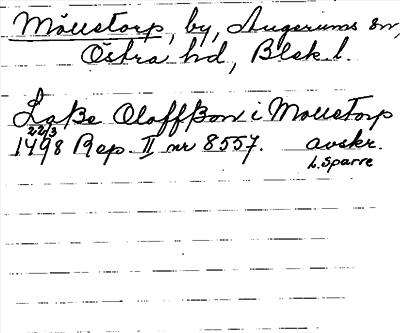 Möllstorp, by, Augerums sn,
Östra hd, Blek l.
Laße Olaffßon i Mollstorp
22/3
1498 Rep. II nr 8557. avskr.
L. Sparre